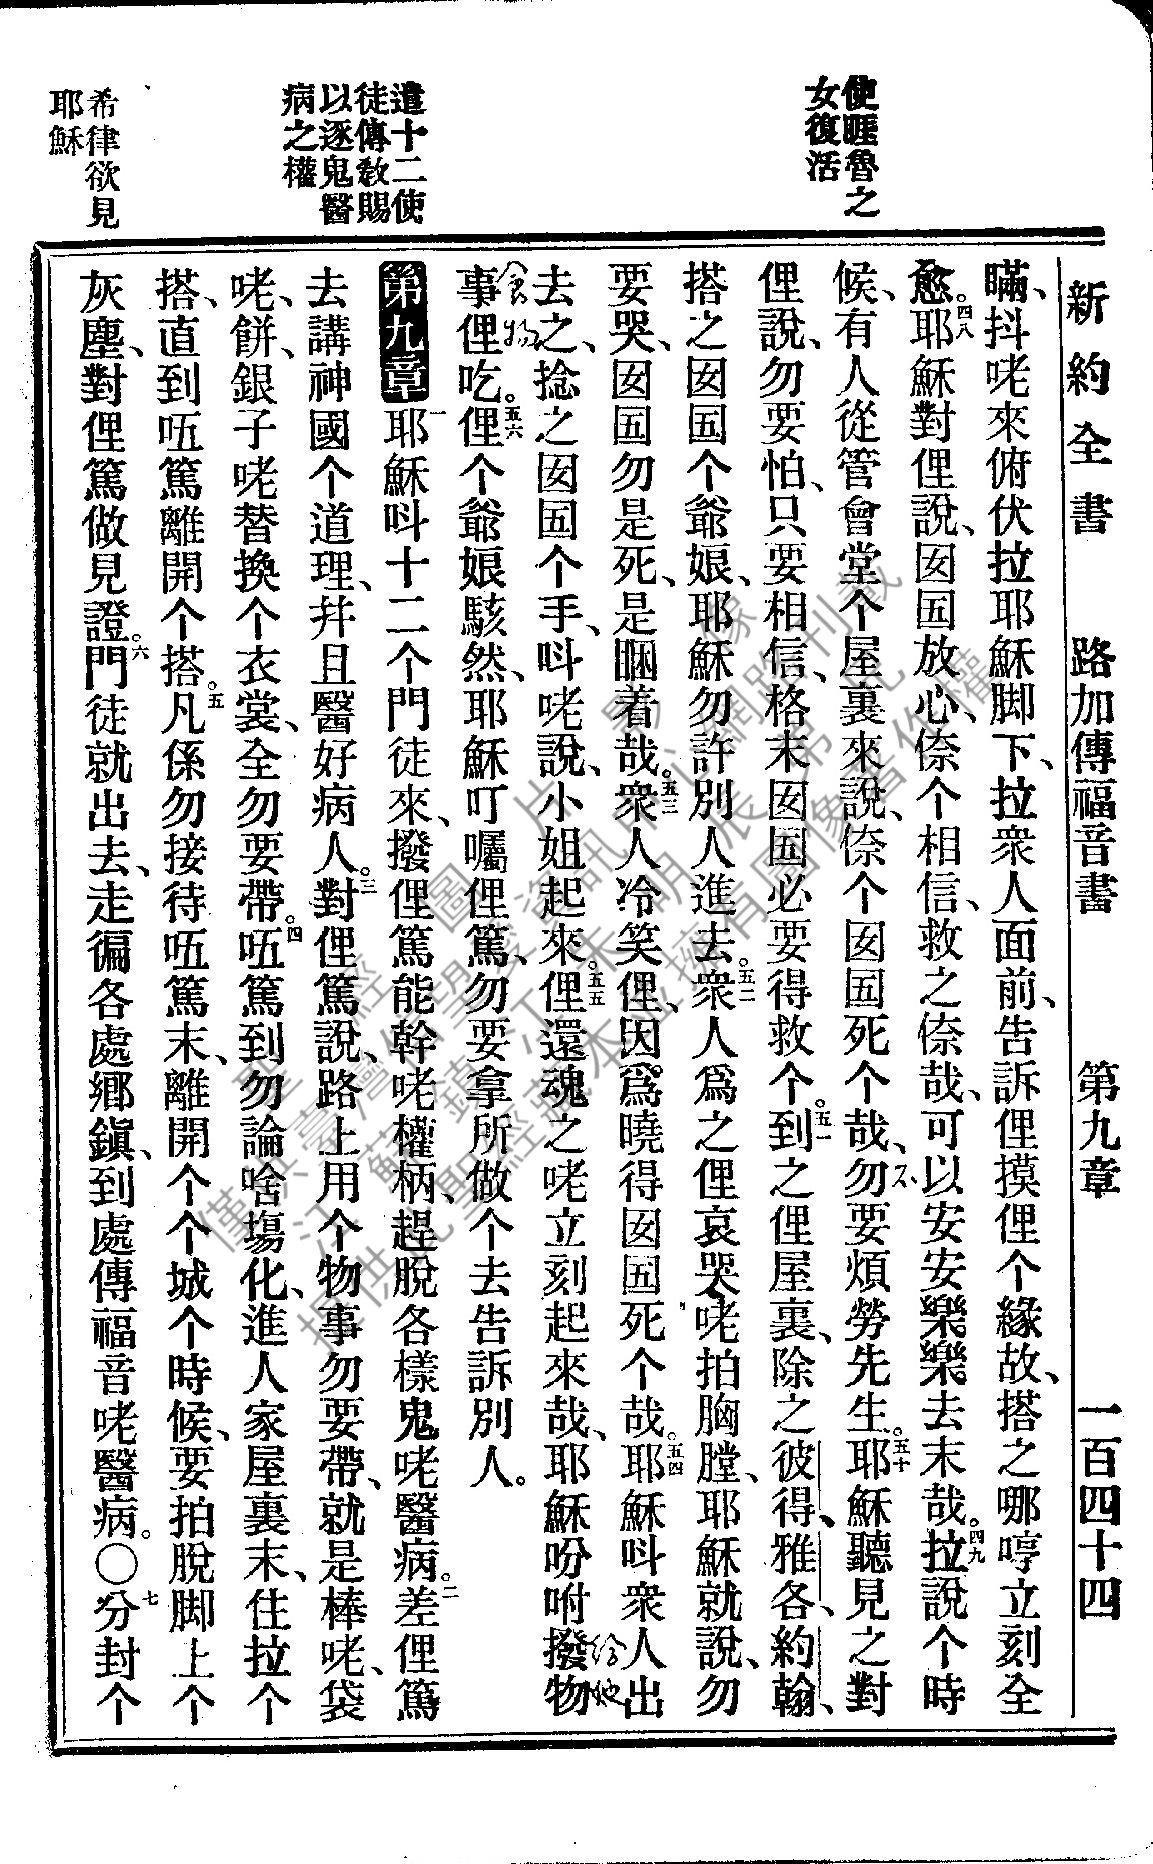 新約全書 路加傳福音書 第九章 一百四十四
使睚魯之
女復活
遣十二使
徒傳教賜
以逐鬼醫
病之權
希律欲見
耶穌
瞞、抖咾來俯伏拉耶穌脚下、拉衆人面前、告訴俚摸俚个緣故、搭之哪哼立刻全
愈。四八耶穌對俚說、囡囝放心、倷个相信、救之倷哉、可以安安樂樂去末哉。四九拉說个時
候、有人從管會堂个屋裏來說、倷个囡囝死个哉、勿要煩勞先生。五十耶穌聽見之對
俚說、勿要怕、只要相信、格末囡囝必要得救个。五一到之俚屋裏、除之彼得、雅各、約翰、
搭之囡囝个爺娘、耶穌勿許別人進去。五二衆人爲之俚哀哭咾拍胸膛、耶穌就說、勿
要哭、囡囝勿是死、是睏着哉。五三衆人冷笑俚、因爲曉得囡囝死个哉。五四耶穌呌衆人出
去之、捻之囡囝个手、呌咾說、小姐起來。五五俚還魂之咾立刻起來哉、耶穌吩咐撥物
給她
事俚吃。五六俚个爺娘駭然、耶穌叮囑俚篤、勿要拿所做个去告訴別人。
食物
第九章 一耶穌呌十二个門徒來、撥俚篤能幹咾權柄、趕脫各樣鬼咾醫病。二差俚篤
去講神國个道理、幷且醫好病人。三對俚篤說、路上用个物事勿要帶、就是棒咾、袋
咾、餅、銀子咾替換个衣裳、全勿要帶。四㕶篤到勿論啥塲化、進人家屋裏末、住拉个
搭、直到㕶篤離開个搭。五凡係勿接待㕶篤末、離開个个城个時候、要拍脫脚上个
灰塵、對俚篤做見證。六門徒就出去、走徧各處鄉鎭、到處傳福音咾醫病。〇七分封个